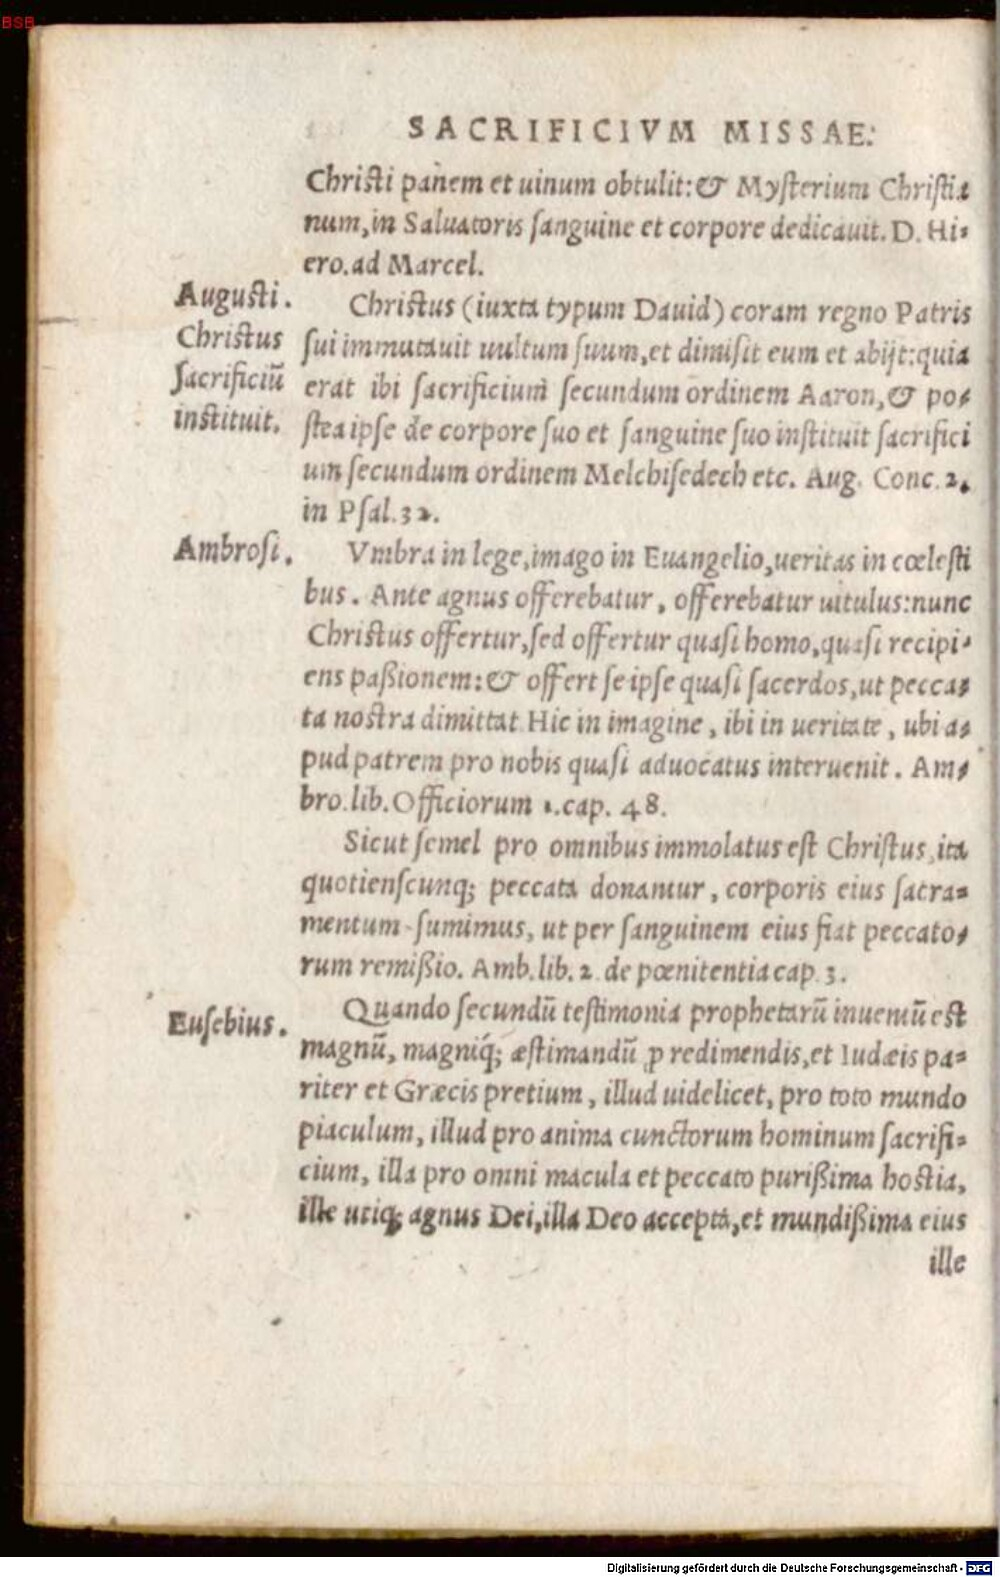 BSB
SACRIFICIVM MISSAE.
Christi panem et uinum obtulit: & Mysterium Christia
num, in Saluatoris sanguine et corpore dedicauit. D. Hi-
ero. ad Marcel.
Augusti.
Christus
sacrificiũ
instituit.
Christus (iuxta typum Dauid) coram regno Patris
sui immutauit uultum suum, et dimisit eum et abijt: quia
erat ibi sacrificium secundum ordinem Aaron, & po-
stea ipse de corpore suo et sanguine suo instituit sacrifici
um secundum ordinem Melchisedech etc. Aug. Conc. 2.
in Psal. 32.
Ambrosi.
Vmbra in lege, imago in Euangelio, ueritas in cœlesti
bus. Ante agnus offerebatur, offerebatur uitulus: nunc
Christus offertur, sed offertur quasi homo, quasi recipi-
ens paßionem: & offert se ipse quasi sacerdos, ut pecca-
ta nostra dimittat Hic in imagine, ibi in ueritate, ubi a-
pud patrem pro nobis quasi aduocatus interuenit. Am-
bro. lib. Officiorum 1. cap. 48.
Sicut semel pro omnibus immolatus est Christus, ita
quotienscunq; peccata donantur, corporis eius sacra-
mentum sumimus, ut per sanguinem eius fiat peccato-
rum remißio. Amb. lib. 2. de pœnitentia cap. 3.
Eusebius.
Quando secundũ testimonia prophetarũ inuentũ est
magnũ, magniq́; æstimandũ ꝓ redimendis, et Iudæis pa-
riter et Græcis pretium, illud uidelicet, pro toto mundo
piaculum, illud pro anima cunctorum hominum sacrifi-
cium, illa pro omni macula et peccato purißima hostia,
ille utiq; agnus Dei, illa Deo accepta, et mundißima eius
ille
Digitalisierung gefördert durch die Deutsche Forschungsgemeinschaft - DFG